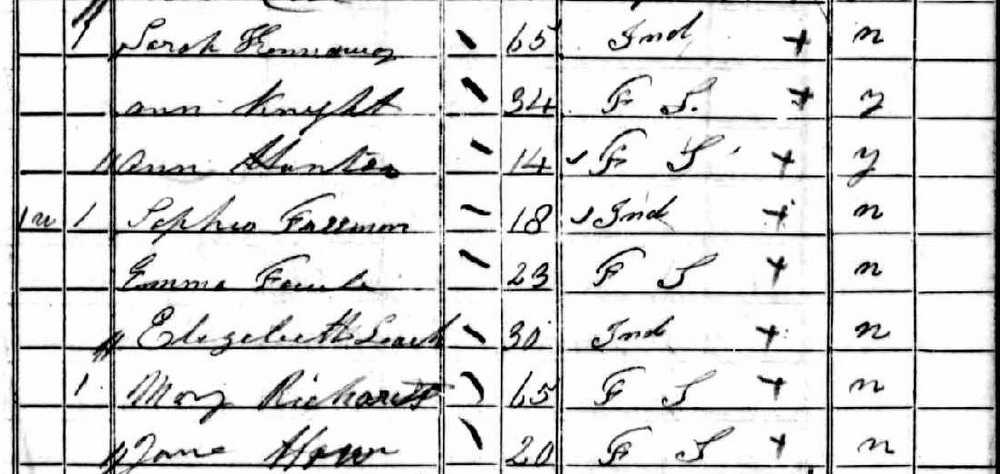 1 Sarah 65 Ind n
Ann Knight 34 F S. y
Ann Hunter 14 F S y
1 u 1 Sophia Freeman 18 Ind n
Emma 23 F S n
Elizabeth Leach 30 Ind n
1 Mary Richards 65 F S n
Jane 20 F S n